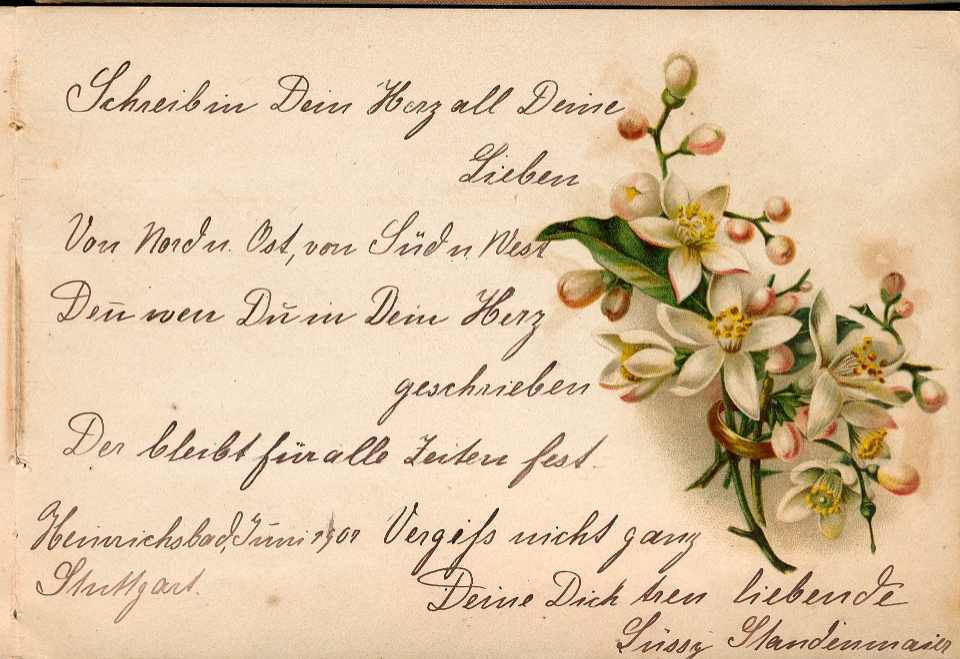 Schreib in Dein Herz all Deine
Lieben
Von Nord u. Ost, von Süd u West
Deñ wen Du in Dein Herz
geschrieben
Der bleibt für alle Zeiten fest.
Heinrichsbad, Juni 1901 Vergiß nicht ganz
Stuttgart.
Deine Dich treu liebende
Süssy Standenmaier